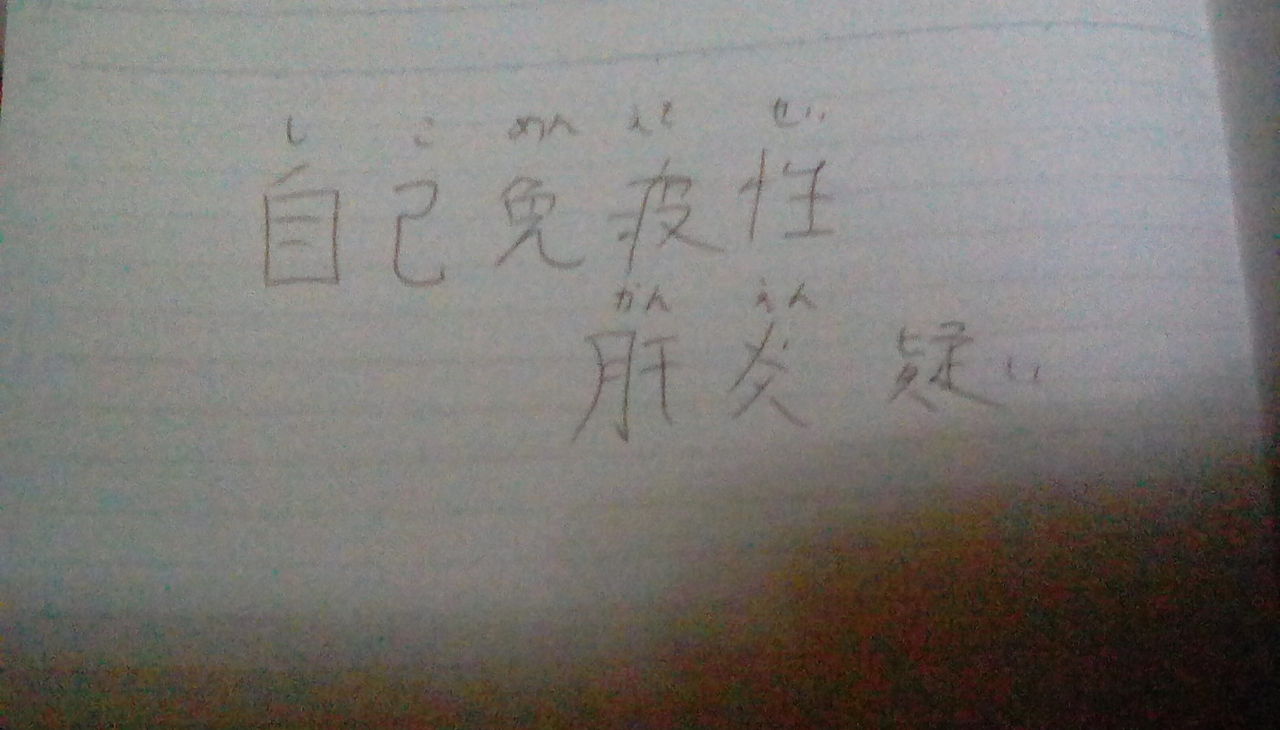 じ こ めん えき せい
自己免疫性
かん えん
肝炎 疑い